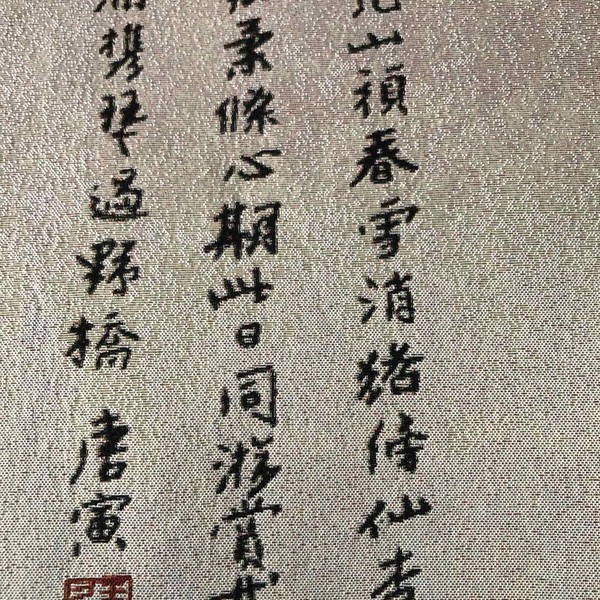 山禎春雪消猪傍仙杏
柔條心期此日同游賞
攜琴過野橋 唐寅